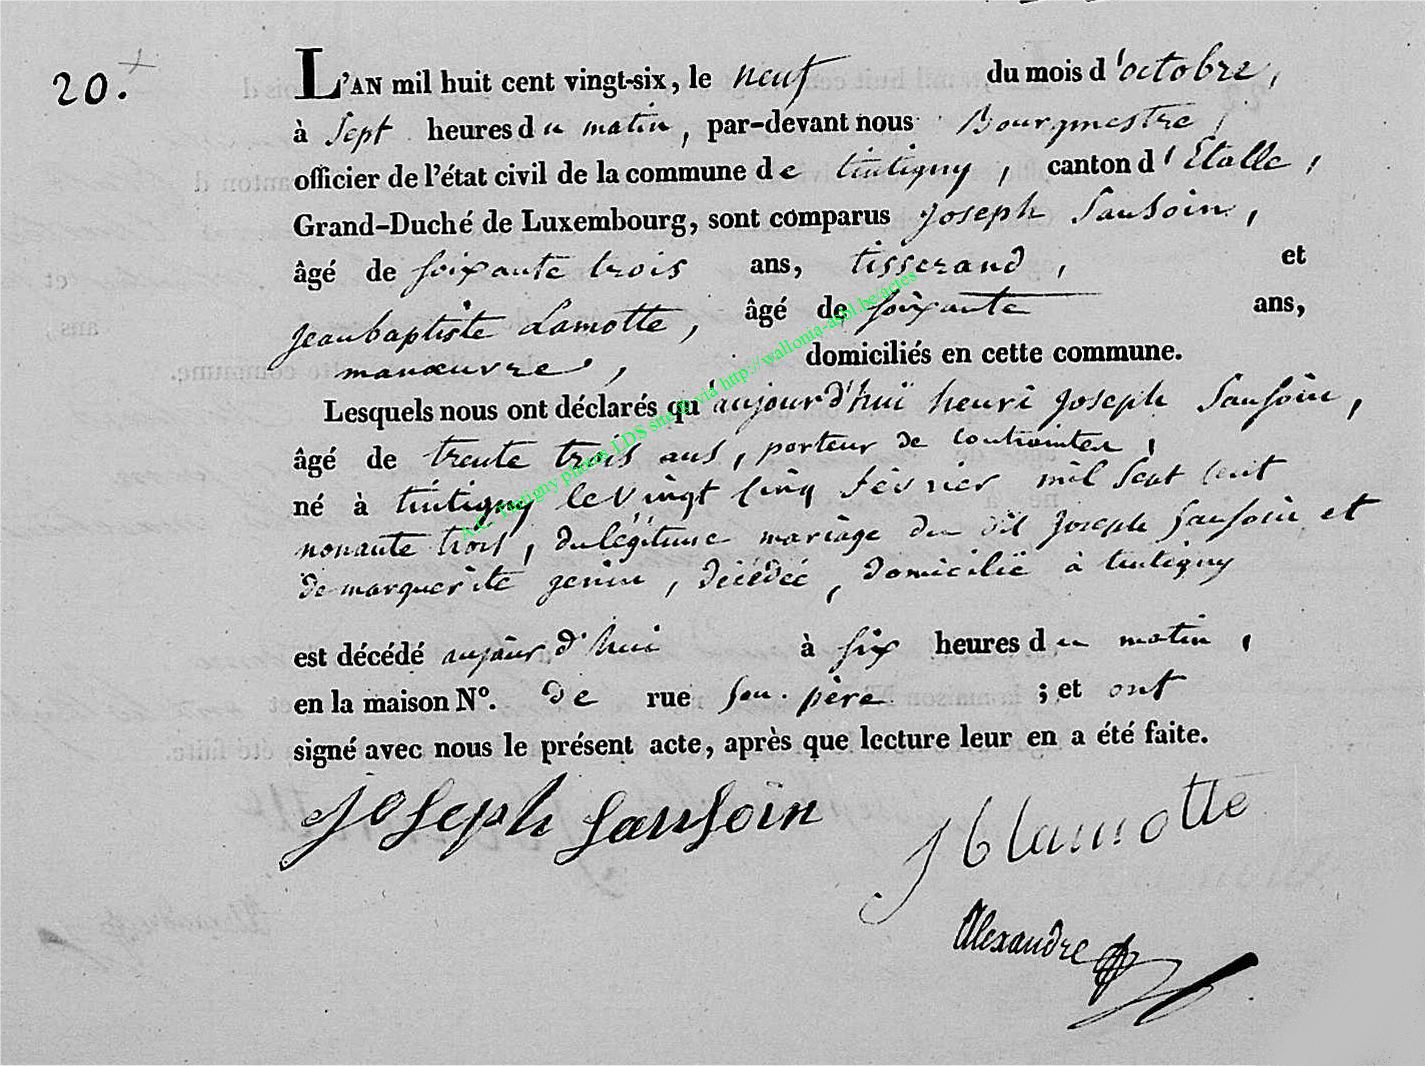 20.
L'AN mil huit cent vingt-six, le neuf du mois d'octobre,
à sept heures du matin, par-devant nous Bourgmestre,
officier de l'état civil de la commune de tintigny, canton d'Etalle,
Grand-Duché de Luxembourg, sont comparus joseph Sausoin,
âgé de soixante trois ans, tisserand, et
jeanbaptiste Lamotte, âgé de soixante ans,
manœuvre, domiciliés en cette commune.
Lesquels nous ont déclarés qu'aujourd'hui henri joseph Sausoin,
âgé de trente trois ans, porteur de contraintes,
né à tintigny le vingt cinq février mil sept cent
nonante trois, du légitime mariage du dit joseph Sausoin et
de marguerite genin, décédée, domicilié à tintigny
est décédé aujourd'hui à six heures du matin,
en la maison N°. de rue son père ; et ont
signé avec nous le présent acte, après que lecture leur en a été faite.
joseph Sausoin
J b lamotte
Alexandre
A.C. Tintigny photos LDS site B via http://wallonia-asbl.be/actes